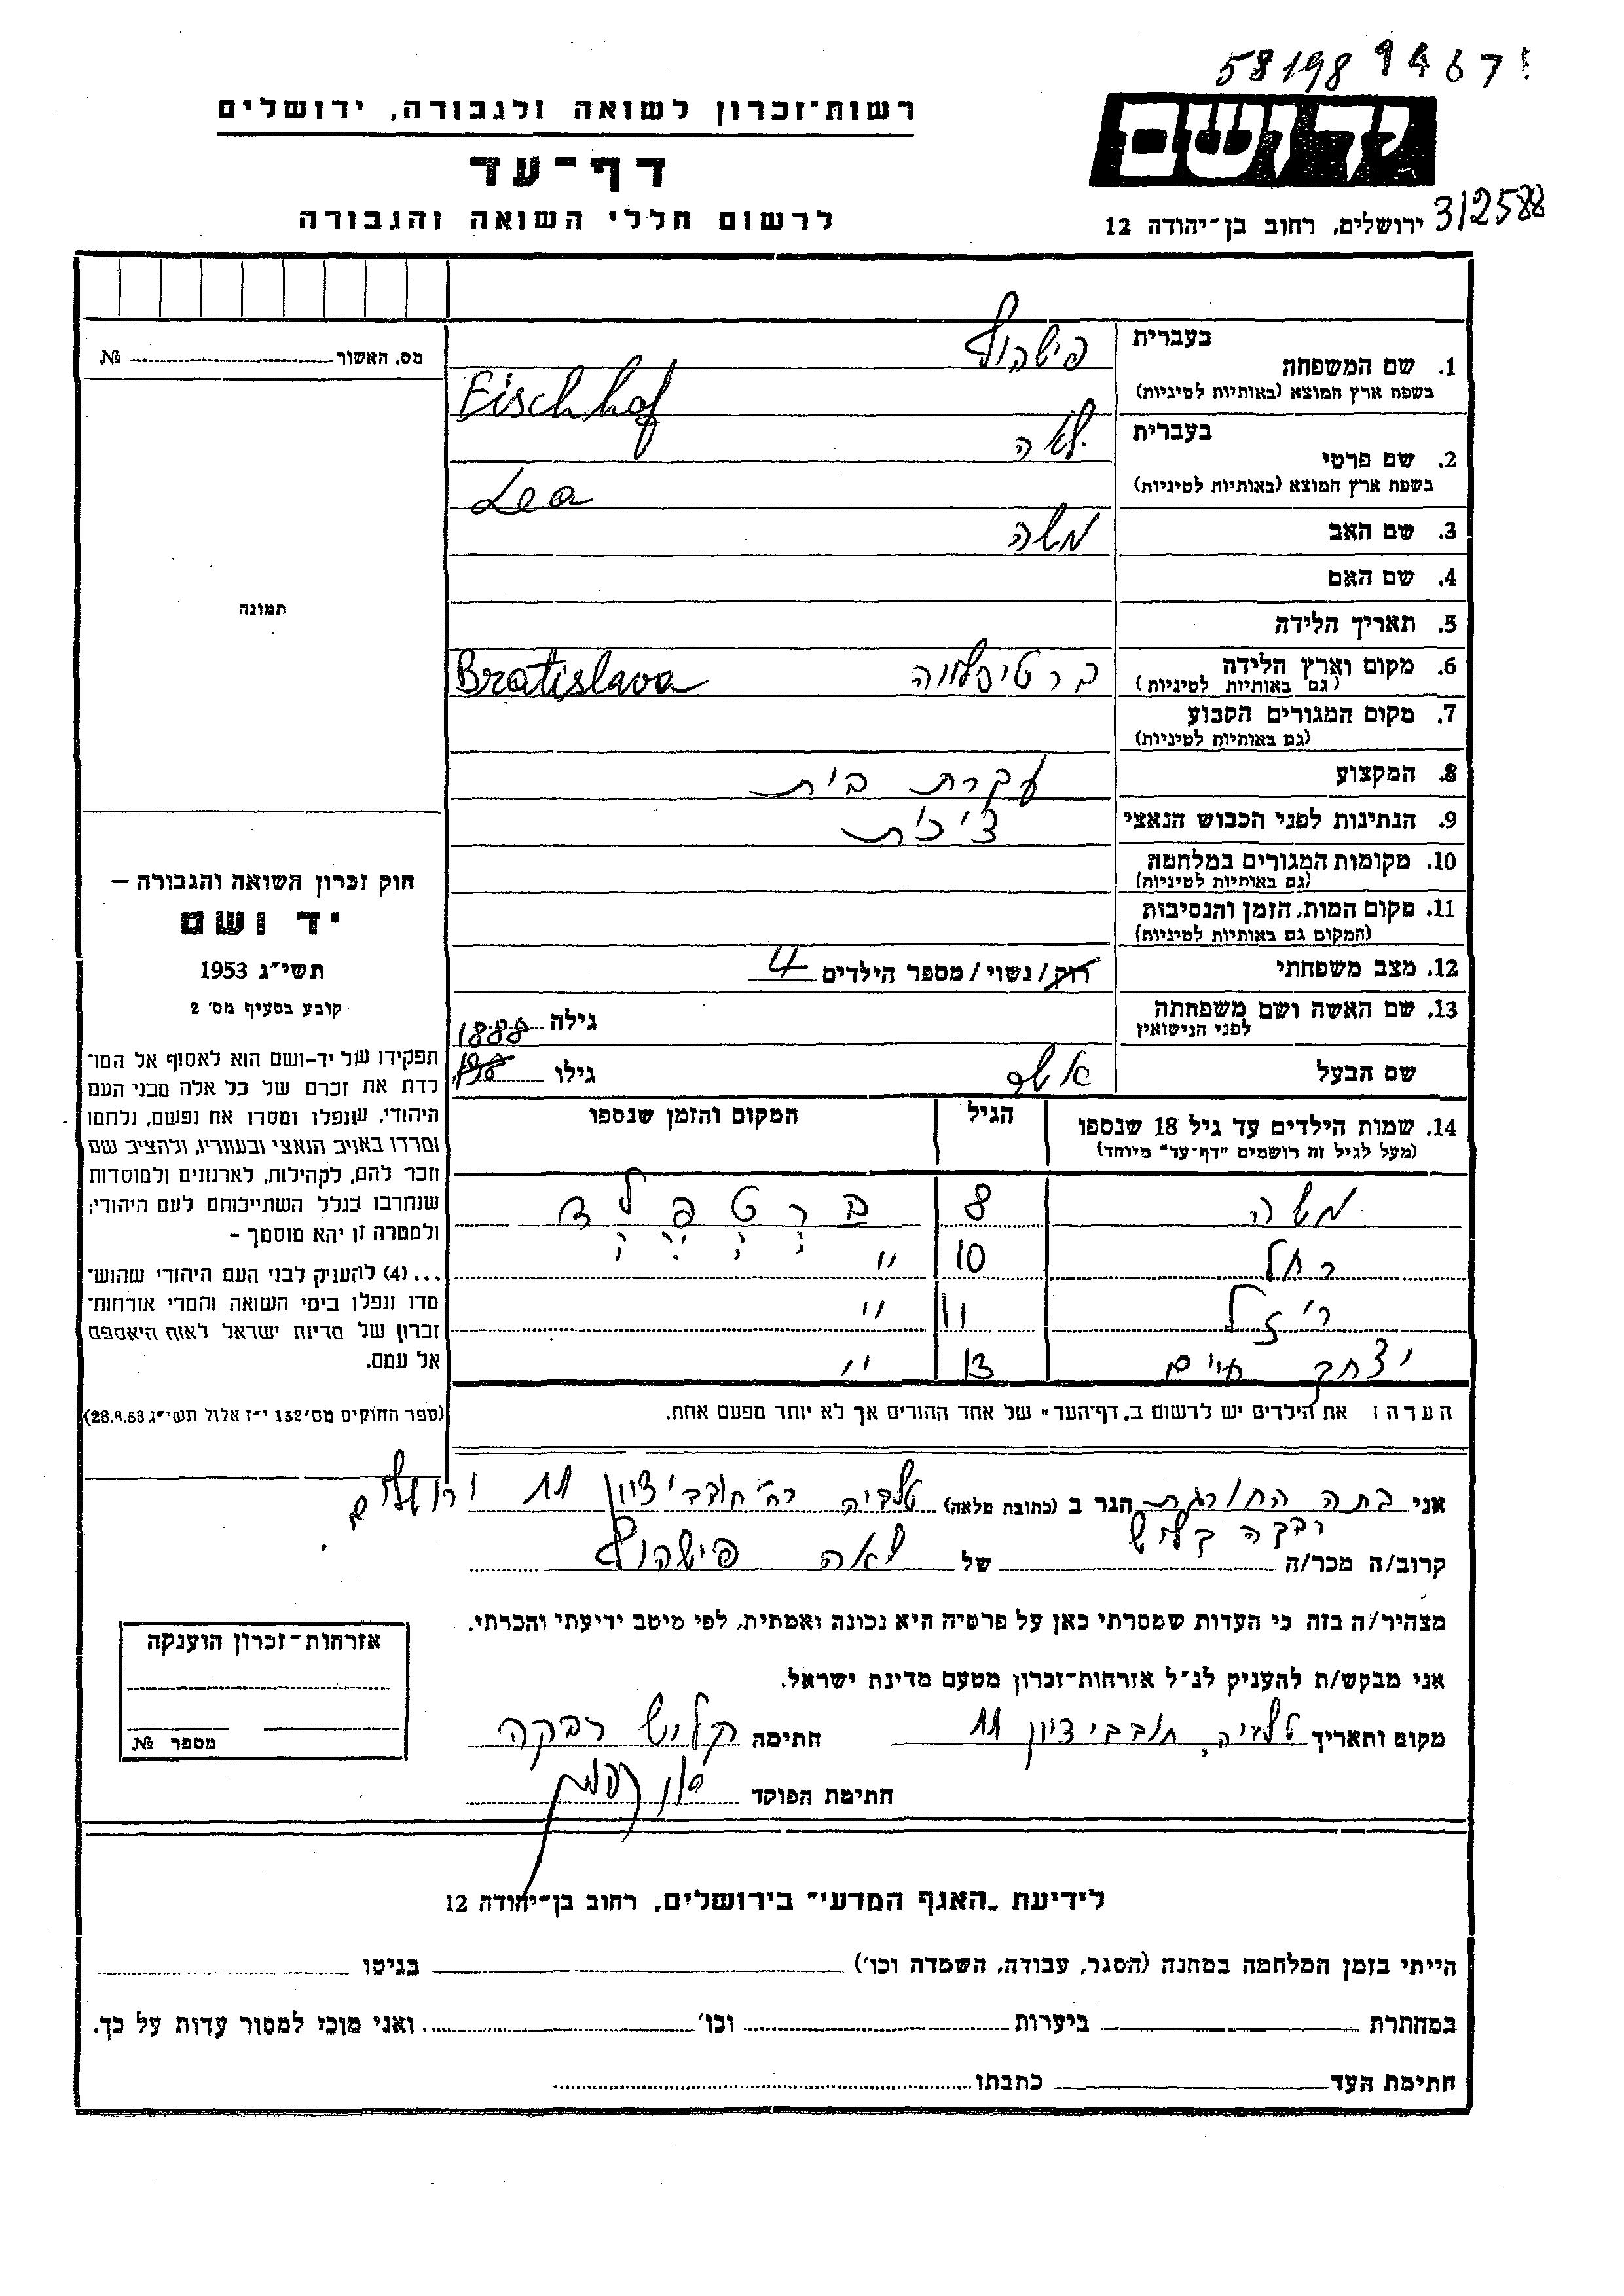 58198 9467
רשות־זכרון לשואה ולגבורה, ירושלים
דף־עד
לרשום חללי השואה והגבורה
יד ושם
ירושלים, רחוב בן־יהודה 12
312588
מס. האשור № 
בעברית
1. שם המשפחה
פישהוף
בשפת ארץ המוצא (באותיות לטיניות)
Fischhof
בעברית
2. שם פרטי
לאה
בשפת ארץ המוצא (באותיות לטיניות)
Lea
3. שם האב
משה
4. שם האם
5. תאריך הלידה
6. מקום וארץ הלידה
(גם באותיות לטיניות)
ברטיסלווה Bratislava
7. מקום המגורים הקבוע
(גם באותיות לטיניות)
8. המקצוע
עקרת בית
9. הנתינות לפני הכבוש הנאצי
צ'כית
10. מקומות המגורים במלחמה
(גם באותיות לטיניות)
11. מקום המות, הזמן והנסיבות
(המקום גם באותיות לטיניות)
12. מצב משפחתי
רוק/נשוי/מספר הילדים 4
13. שם האשה ושם משפחתה
לפני הנישואין
גילה 1888
שם הבעל
אשר
גילו
14. שמות הילדים עד גיל 18 שנספו
(מעל לגיל זה רושמים "דף־עד" מיוחד)
הגיל
המקום והזמן שנספו
משה 8 ברטפלד
רחל 10 "
ריזל 11 "
יצחק חיים 13 "
הערה: את הילדים יש לרשום ב„דף־העד" של אחד ההורים אך לא יותר מפעם אחת.
תמונה
חוק זכרון השואה והגבורה —
יד ושם
תשי"ג 1953
קובע בסעיף מס' 2
תפקידו של יד־ושם הוא לאסוף אל המו־
לדת את זכרם של כל אלה מבני העם
היהודי, שנפלו ומסרו את נפשם, נלחמו
ומרדו באויב הנאצי ובעוזריו, ולהציב שם
וזכר להם, לקהילות, לארגונים ולמוסדות
שנחרבו בגלל השתייכותם לעם היהודי;
ולמטרה זו יהא מוסמך —
...(4) להעניק לבני העם היהודי שהוש־
מדו ונפלו בימי השואה והמרי אזרחות־
זכרון של מדינת ישראל לאות היאספם
אל עמם.
(ספר החוקים מס' 132 י"ז אלול תשי"ג 28.8.53)
אני בתה החורגת הגר ב (כתובת מלאה) טלביה רח' חובבי ציון 11 ירושלים
רבקה קליש
קרוב/ה מכר/ה של לאה פישהוף
מצהיר/ה בזה כי העדות שמסרתי כאן על פרטיה היא נכונה ואמתית, לפי מיטב ידיעתי והכרתי.
אני מבקש/ת להעניק לנ"ל אזרחות־זכרון מטעם מדינת ישראל.
מקום ותאריך טלביה, חובבי ציון 11 חתימה קליש רבקה
חתימת הפוקד
אזרחות־זכרון הוענקה
מספר №
לידיעת „האגף המדעי" בירושלים, רחוב בן־יהודה 12
הייתי בזמן המלחמה במחנה (הסגר, עבודה, השמדה וכו') בגיטו
במחתרת ביערות וכו' ואני מוכן למסור עדות על כך.
חתימת העד כתבתו